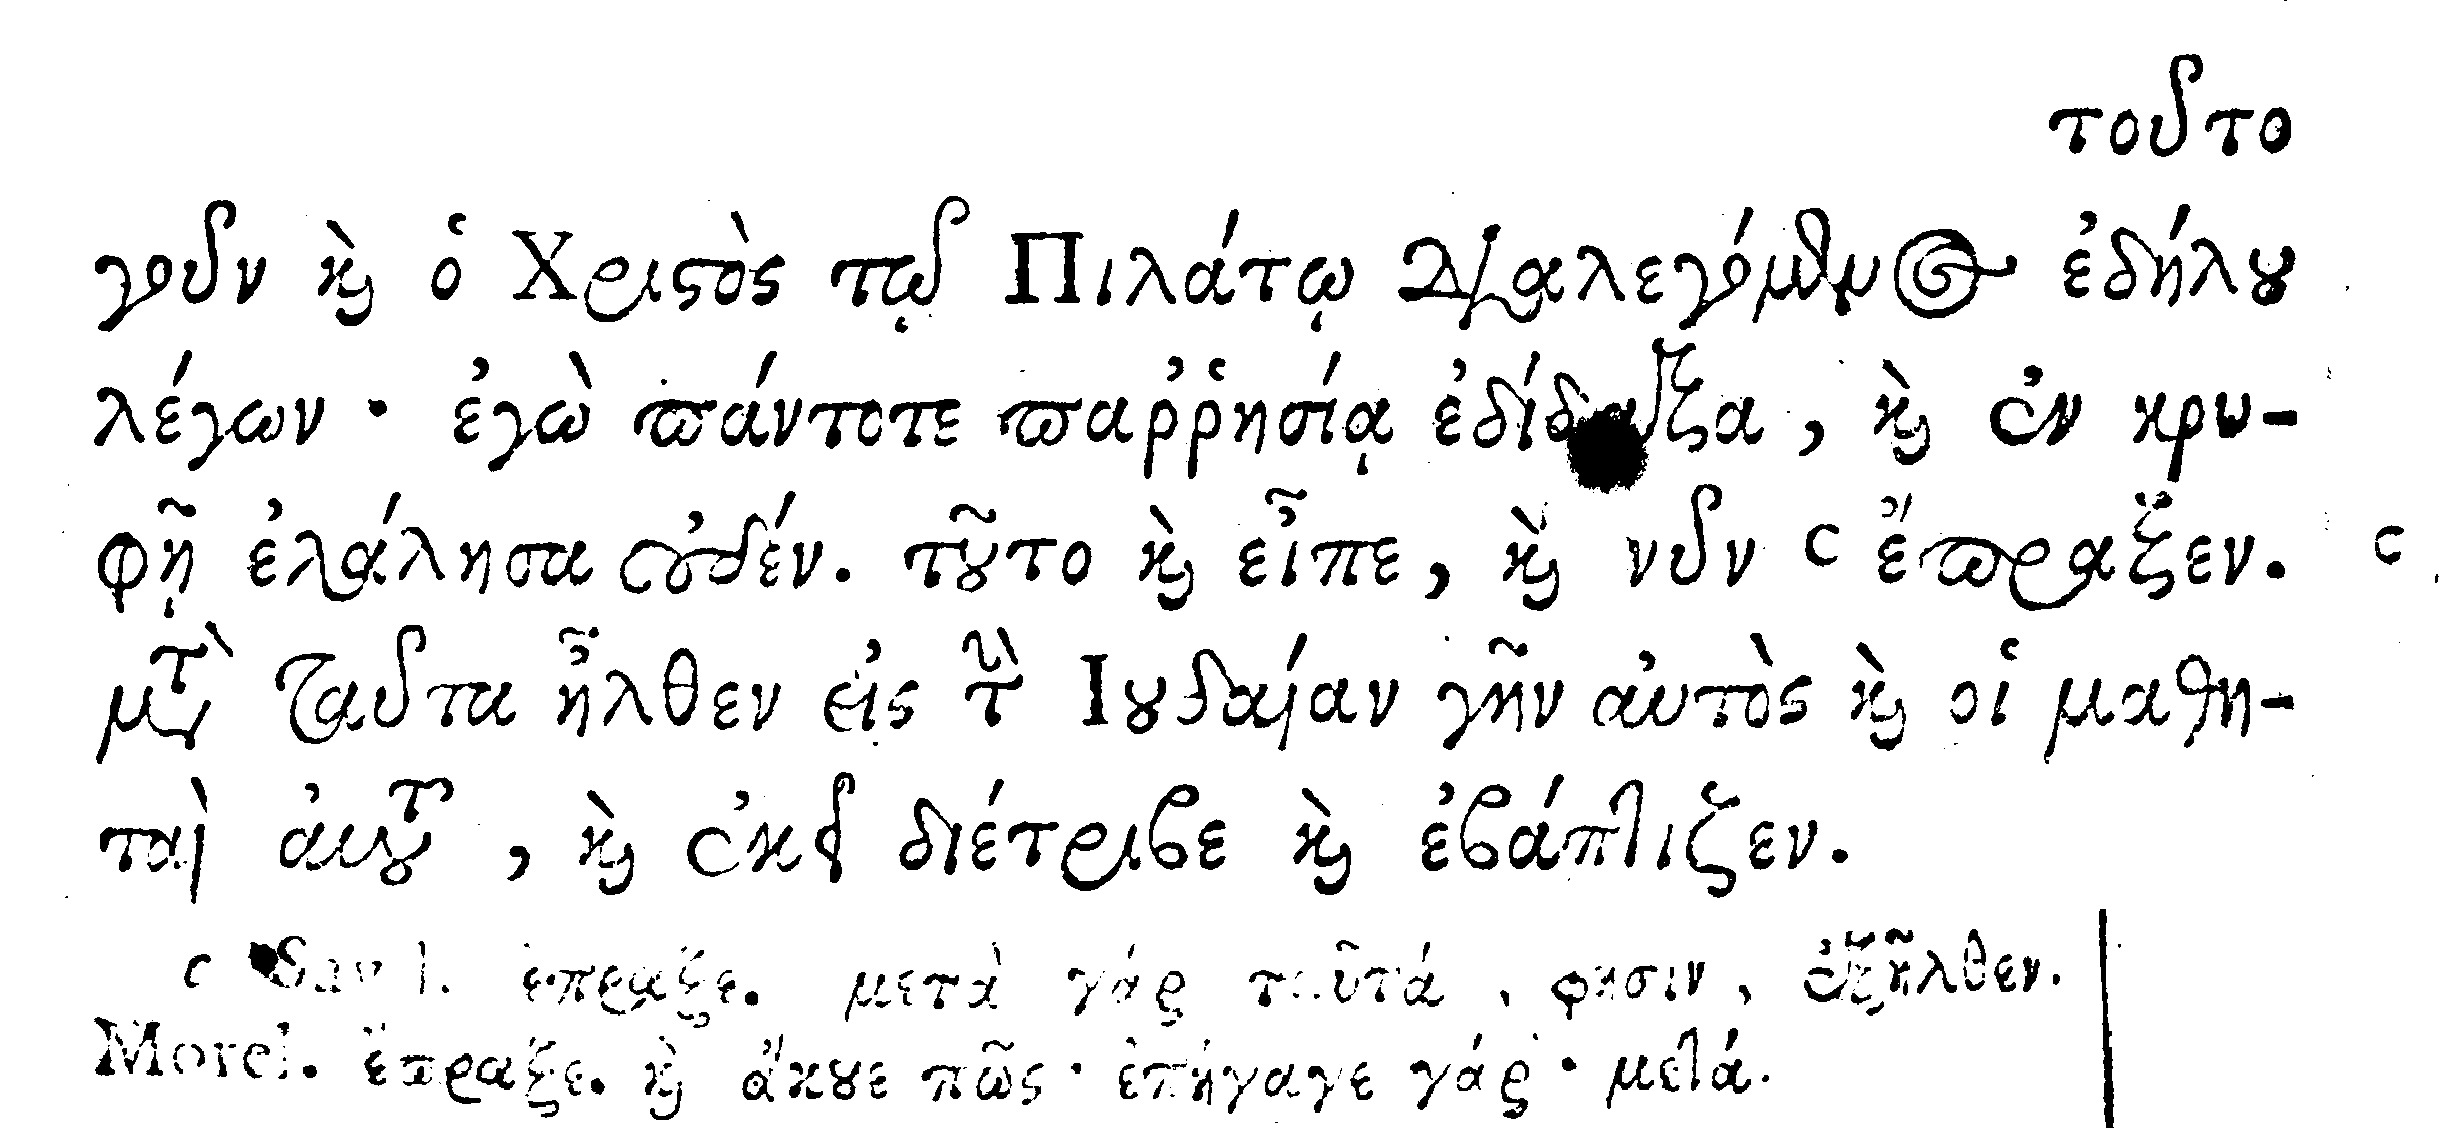 τοῦτο
γοῦν καὶ ὁ Χριστὸς τῷ Πιλάτῳ διαλεγόμενος ἐδήλου
λέγων· ἐγὼ πάντοτε παῤῥησίᾳ ἐδίδαξα, καὶ ἐν κρυ-
φῇ ἐλάλησα οὐδέν. τοῦτο καὶ εἶπε, καὶ νῦν c ἔπραξεν. c
μετὰ ταῦτα ἦλθεν εἰς τὴν Ἰουδαίαν γῆν αὐτὸς καὶ οἱ μαθη-
ταὶ αὐτοῦ, καὶ ἐκεῖ διέτριβε καὶ ἐβάπτιζεν.
c Savil. ἔπραξε. μετὰ γάρ ταῦτά, φησιν, ἐξῆλθεν.
Morel. ἔπραξε. καὶ ἄκουε πῶς· ἐπήγαγε γάρ· μετά.